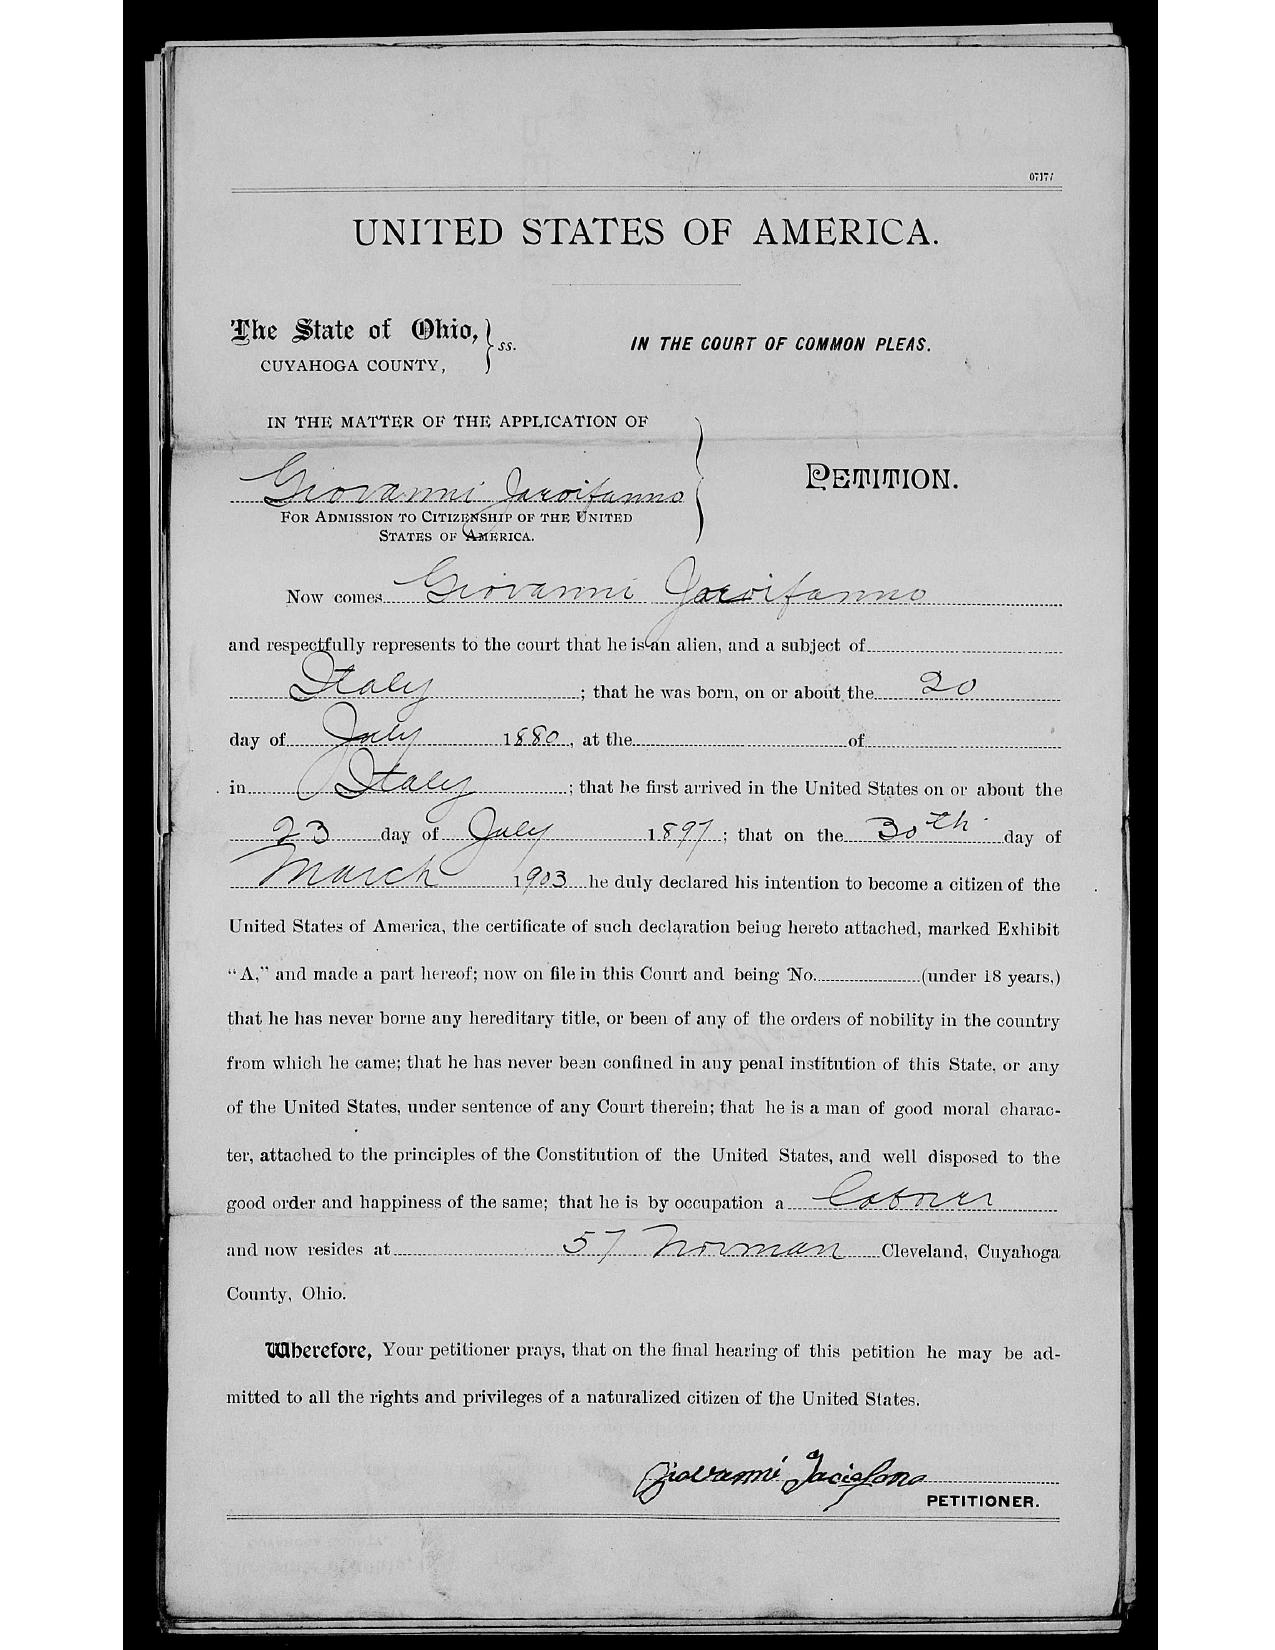 UNITED STATES OF AMERICA.
The State of Ohio, } ss.
CUYAHOGA COUNTY,
IN THE COURT OF COMMON PLEAS.
IN THE MATTER OF THE APPLICATION OF
Giovanni
FOR ADMISSION TO CITIZENSHIP OF THE UNITED
STATES OF AMERICA.
PETITION.
Now comes Giovanni
and respectfully represents to the court that he is an alien, and a subject of
Italy ; that he was born, on or about the 20
day of July 1880, at the of
in Italy ; that he first arrived in the United States on or about the
23 day of July 1897 ; that on the 30th day of
March 1903 he duly declared his intention to become a citizen of the
United States of America, the certificate of such declaration being hereto attached, marked Exhibit
"A," and made a part hereof; now on file in this Court and being No. (under 18 years,)
that he has never borne any hereditary title, or been of any of the orders of nobility in the country
from which he came; that he has never been confined in any penal institution of this State, or any
of the United States, under sentence of any Court therein; that he is a man of good moral charac-
ter, attached to the principles of the Constitution of the United States, and well disposed to the
good order and happiness of the same; that he is by occupation a Laborer
and now resides at 57 Norman Cleveland, Cuyahoga
County, Ohio.
Wherefore, Your petitioner prays, that on the final hearing of this petition he may be ad-
mitted to all the rights and privileges of a naturalized citizen of the United States.
Giovanni
PETITIONER.